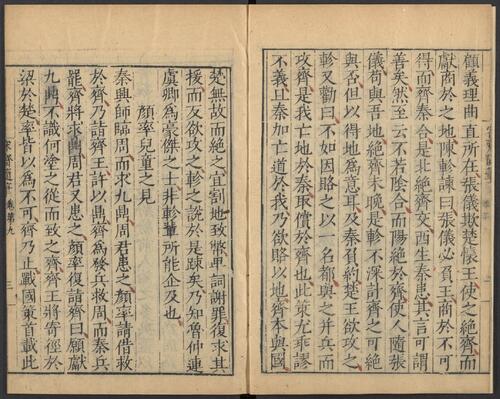 顧義理曲直所在張儀欺楚懷王使之絕齊而
獻商於之地陳軫諫曰張儀必負王商於不可
得而齊秦合是北絕齊交西生秦患其言可謂
善矣然至云不若陰合而陽絕於齊使人隨張
儀苟與吾地絕齊未晚是軫不深計齊之可絕
與否但以得地為意耳及秦負約楚王欲攻之
軫又勸曰不如因賂之以一名都與之并兵而
攻齊是我亡地於秦取償於齊也此策尤乖謬
不義且秦加亡道於我乃欲賂以地齊本與國
楚無故而絕之宜割地致幣卑詞謝罪復求其
援而反欲攻之軫之說於是疎矣乃知魯仲連
虞卿為豪傑之士非軫輩所能企及也
顔率兒童之見
秦興師臨周而求九鼎周君患之顔率請借救
於齊乃詣齊王許以鼎齊為發兵救周而秦兵
罷齊將求鼎周君又患之顔率復詣齊曰願獻
九鼎不識何塗之從而致之齊齊王將寄徑於
梁於楚率皆以為不可齊乃止戰國策首載此